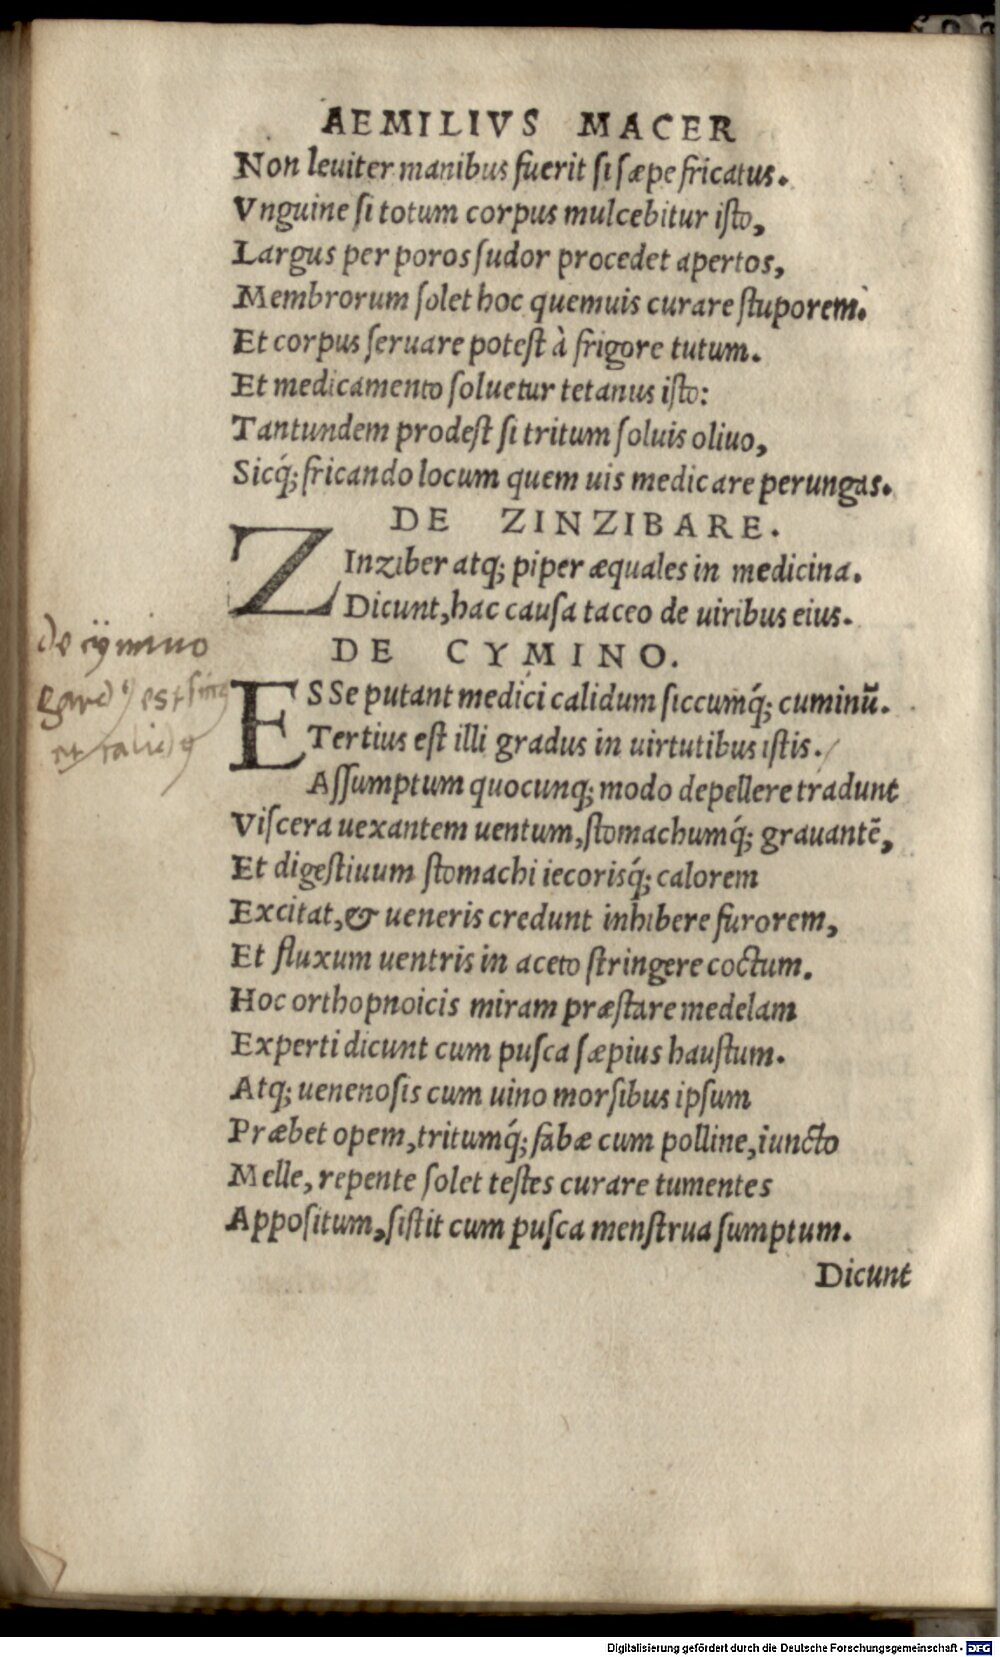 AEMILIVS MACER
Non leuiter manibus fuerit si sæpe fricatus.
Vnguine si totum corpus mulcebitur isto,
Largus per poros sudor procedet apertos,
Membrorum solet hoc quemuis curare stuporem.
Et corpus seruare potest à frigore tutum.
Et medicamento soluetur tetanus isto:
Tantundem prodest si tritum soluis oliuo,
Sicq́; fricando locum quem uis medicare perungas.
DE ZINZIBARE.
ZInziber atq; piper æquales in medicina.
Dicunt, hac causa taceo de uiribus eius.
DE CYMINO.
ESSe putant medici calidum siccumq́; cuminū.
Tertius est illi gradus in uirtutibus istis.
Assumptum quocunq; modo depellere tradunt
Viscera uexantem uentum, stomachumq́; grauantē,
Et digestiuum stomachi iecorisq́; calorem
Excitat, & ueneris credunt inhibere furorem,
Et fluxum uentris in aceto stringere coctum.
Hoc orthopnoicis miram præstare medelam
Experti dicunt cum pusca sæpius haustum.
Atq; uenenosis cum uino morsibus ipsum
Præbet opem, tritumq́; fabæ cum polline, iuncto
Melle, repente solet testes curare tumentes
Appositum, sistit cum pusca menstrua sumptum.
Dicunt
de cÿmino
est
et
Digitalisierung gefördert durch die Deutsche Forschungsgemeinschaft - DFG